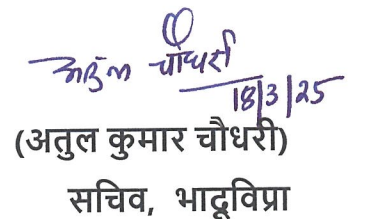 अतुल चौधरी
18/3/25
(अतुल कुमार चौधरी)
सचिव, भादूविप्रा